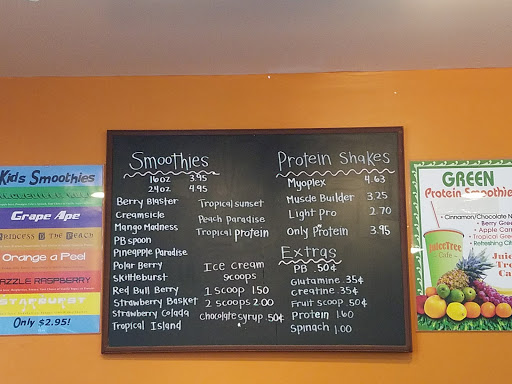 Kids Smoothies
Grape Ape
Princess & the Beach
Orange a Peel
Dazzle Raspberry
Starburst
Only $2.95!
Smoothies
16oz 3.95
24oz 4.95
Berry Blaster
Creamsicle
Mango Madness
PB spoon
Pineapple Paradise
Polar Berry
Skittleburst
Red Bull Berry
Strawberry Basket
Strawberry Colada
Tropical Island
Tropical sunset
Peach Paradise
Tropical protein
Ice Cream
Scoops
1 scoop 1.50
2 scoops 2.00
Chocolate syrup .50¢
Protein Shakes
Myoplex 4.63
Muscle Builder 3.25
Light Pro 2.70
Only Protein 3.95
Extras
PB .50¢
Glutamine .35¢
creatine .35¢
Fruit scoop .50¢
Protein 1.60
Spinach 1.00
GREEN
Protein Smoothie
Cinnamon/Chocolate N
Berry Gree
Apple Car
Tropical Gree
Refreshing Cit
JuiceTree
Cafe
Juice
Tre
Ca